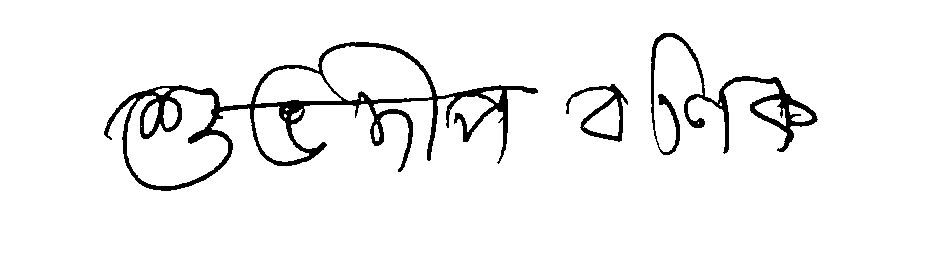 শুভদীপ বণিক